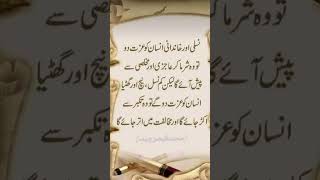 نسلی اور خاندانی انسان کو عزت دو
تو وہ شرما کر عاجزی اور مخلصی سے
پیش آئے گا لیکن کم نسل، نیچ اور گھٹیا
انسان کو عزت دو گے تو وہ تکبر سے
اکڑ جائے گا اور مخالفت میں اتر جائے گا